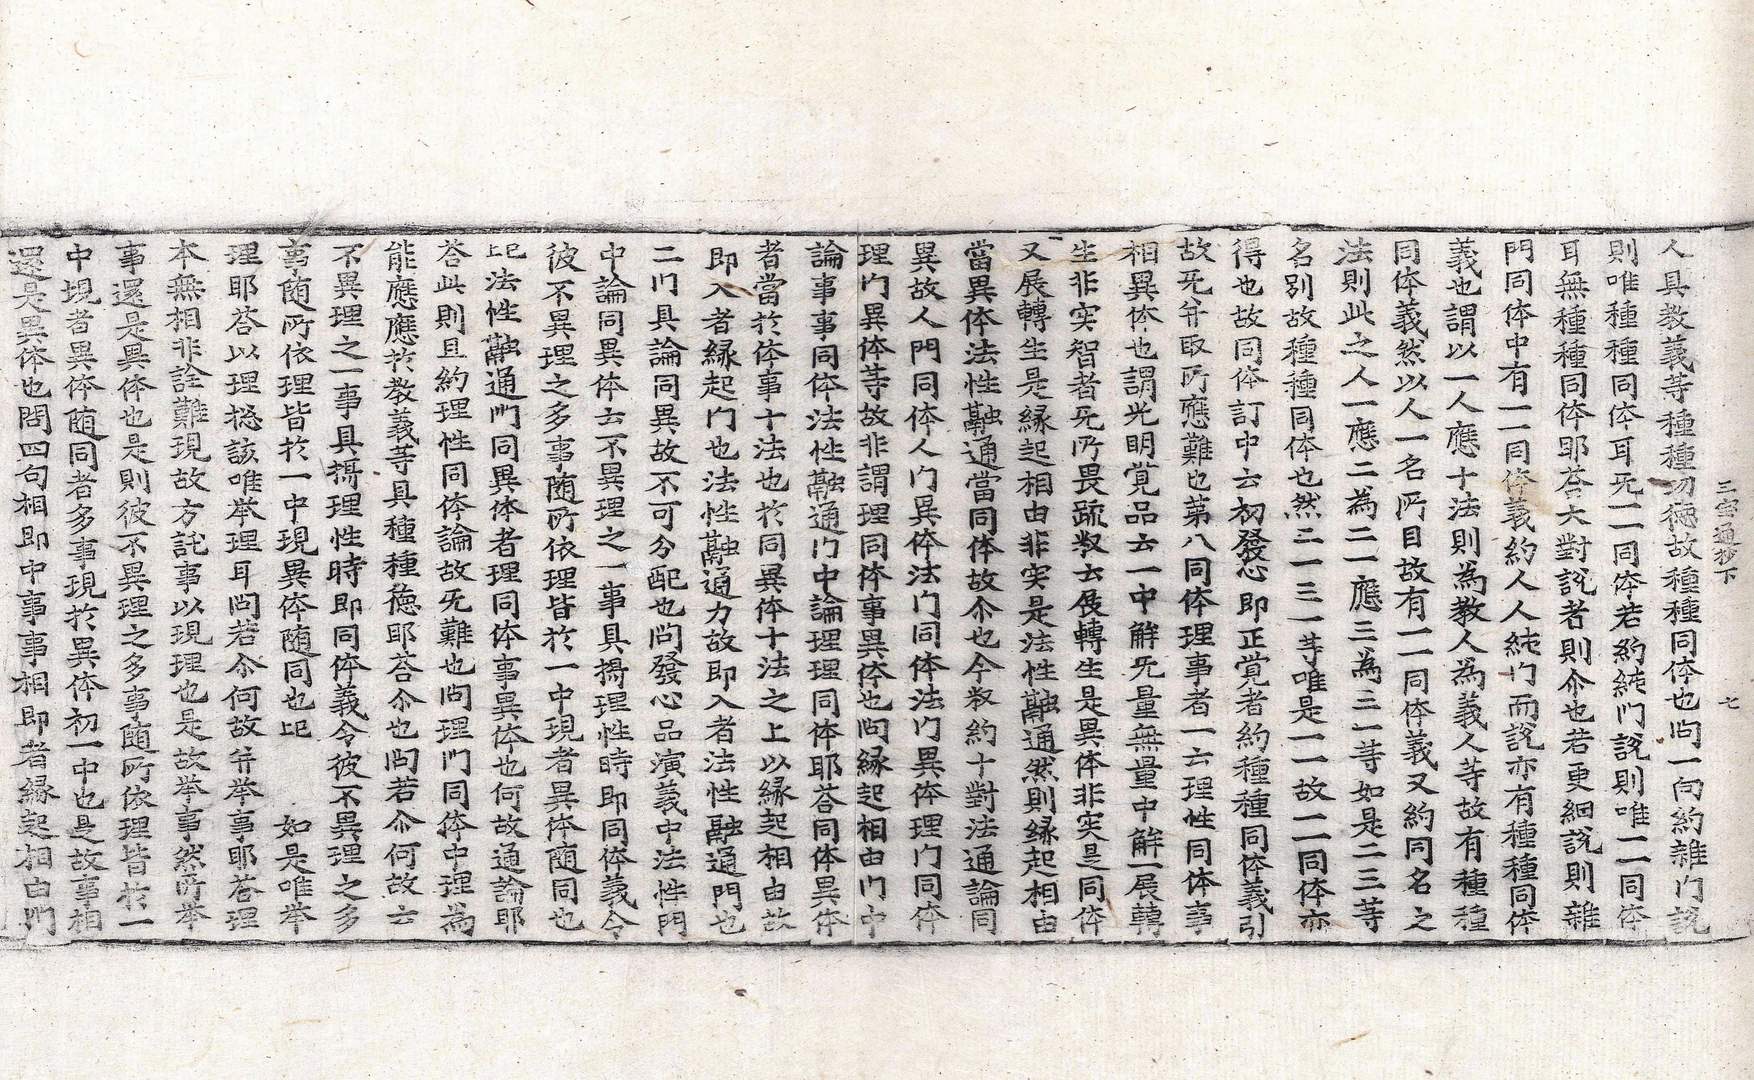 三宝通抄下　七
人具教義等種種功德故種種同体也问一向約雜门說
則唯種種同体耳旡一一同体若約純门說則唯一一同体
耳無種種同体耶荅大對說者則尒也若更細說則雜
門同体中有一一同体義約人人純门而說亦有種種同体
義也謂以一人應十法則為教人為義人等故有種種
同体義然以人一名所目故有一一同体義又約同名之
法則此之人一應二為二一應三為三一等如是二三等
名別故種種同体也然二一三一等唯是一一故一一同体亦
得也故同体訂中云初發心即正覚者約種種同体義引
故旡并取所應難也第八同体理事者一云理性同体事
相異体也謂光明覚品云一中解旡量無量中解一展轉
生非实智者旡所畏疏叔云展轉生是異体非实是同体
又展轉生是縁起相由非实是法性融通然則縁起相由
當異体法性融通當同体故尒也今叔約十對法通論同
異故人門同体人门異体法门同体法门異体理门同体
理门異体等故非謂理同体事異体也问縁起相由门中
論事事同体法性融通门中論理理同体耶荅同体異体
者當於体事十法也於同異体十法之上以縁起相由故
即入者縁起门也法性融通力故即入者法性融通門也
二门具論同異故不可分配也问發心品演義中法性門
中論同異体云不異理之一事具攝理性時即同体義令
彼不異理之多事随所依理皆於一中現者異体随同也
记法性融通門同異体者理同体事異体也何故通論耶
荅此則且約理性同体論故旡難也问理門同体中理為
能應應於教義等具種種德耶荅尒也问若尒何故云
不異理之一事具攝理性時即同体義令彼不異理之多
事随所依理皆於一中現異体随同也记　如是唯举
理耶荅以理揔該唯举理耳问若尒何故并举事耶荅理
本無相非詮難現故方託事以現理也是故举事然所举
事還是異体也是則彼不異理之多事随所依理皆於一
中現者異体随同者多事現於異体初一中也是故事相
還是異体也問四句相即中事事相即者縁起相由門